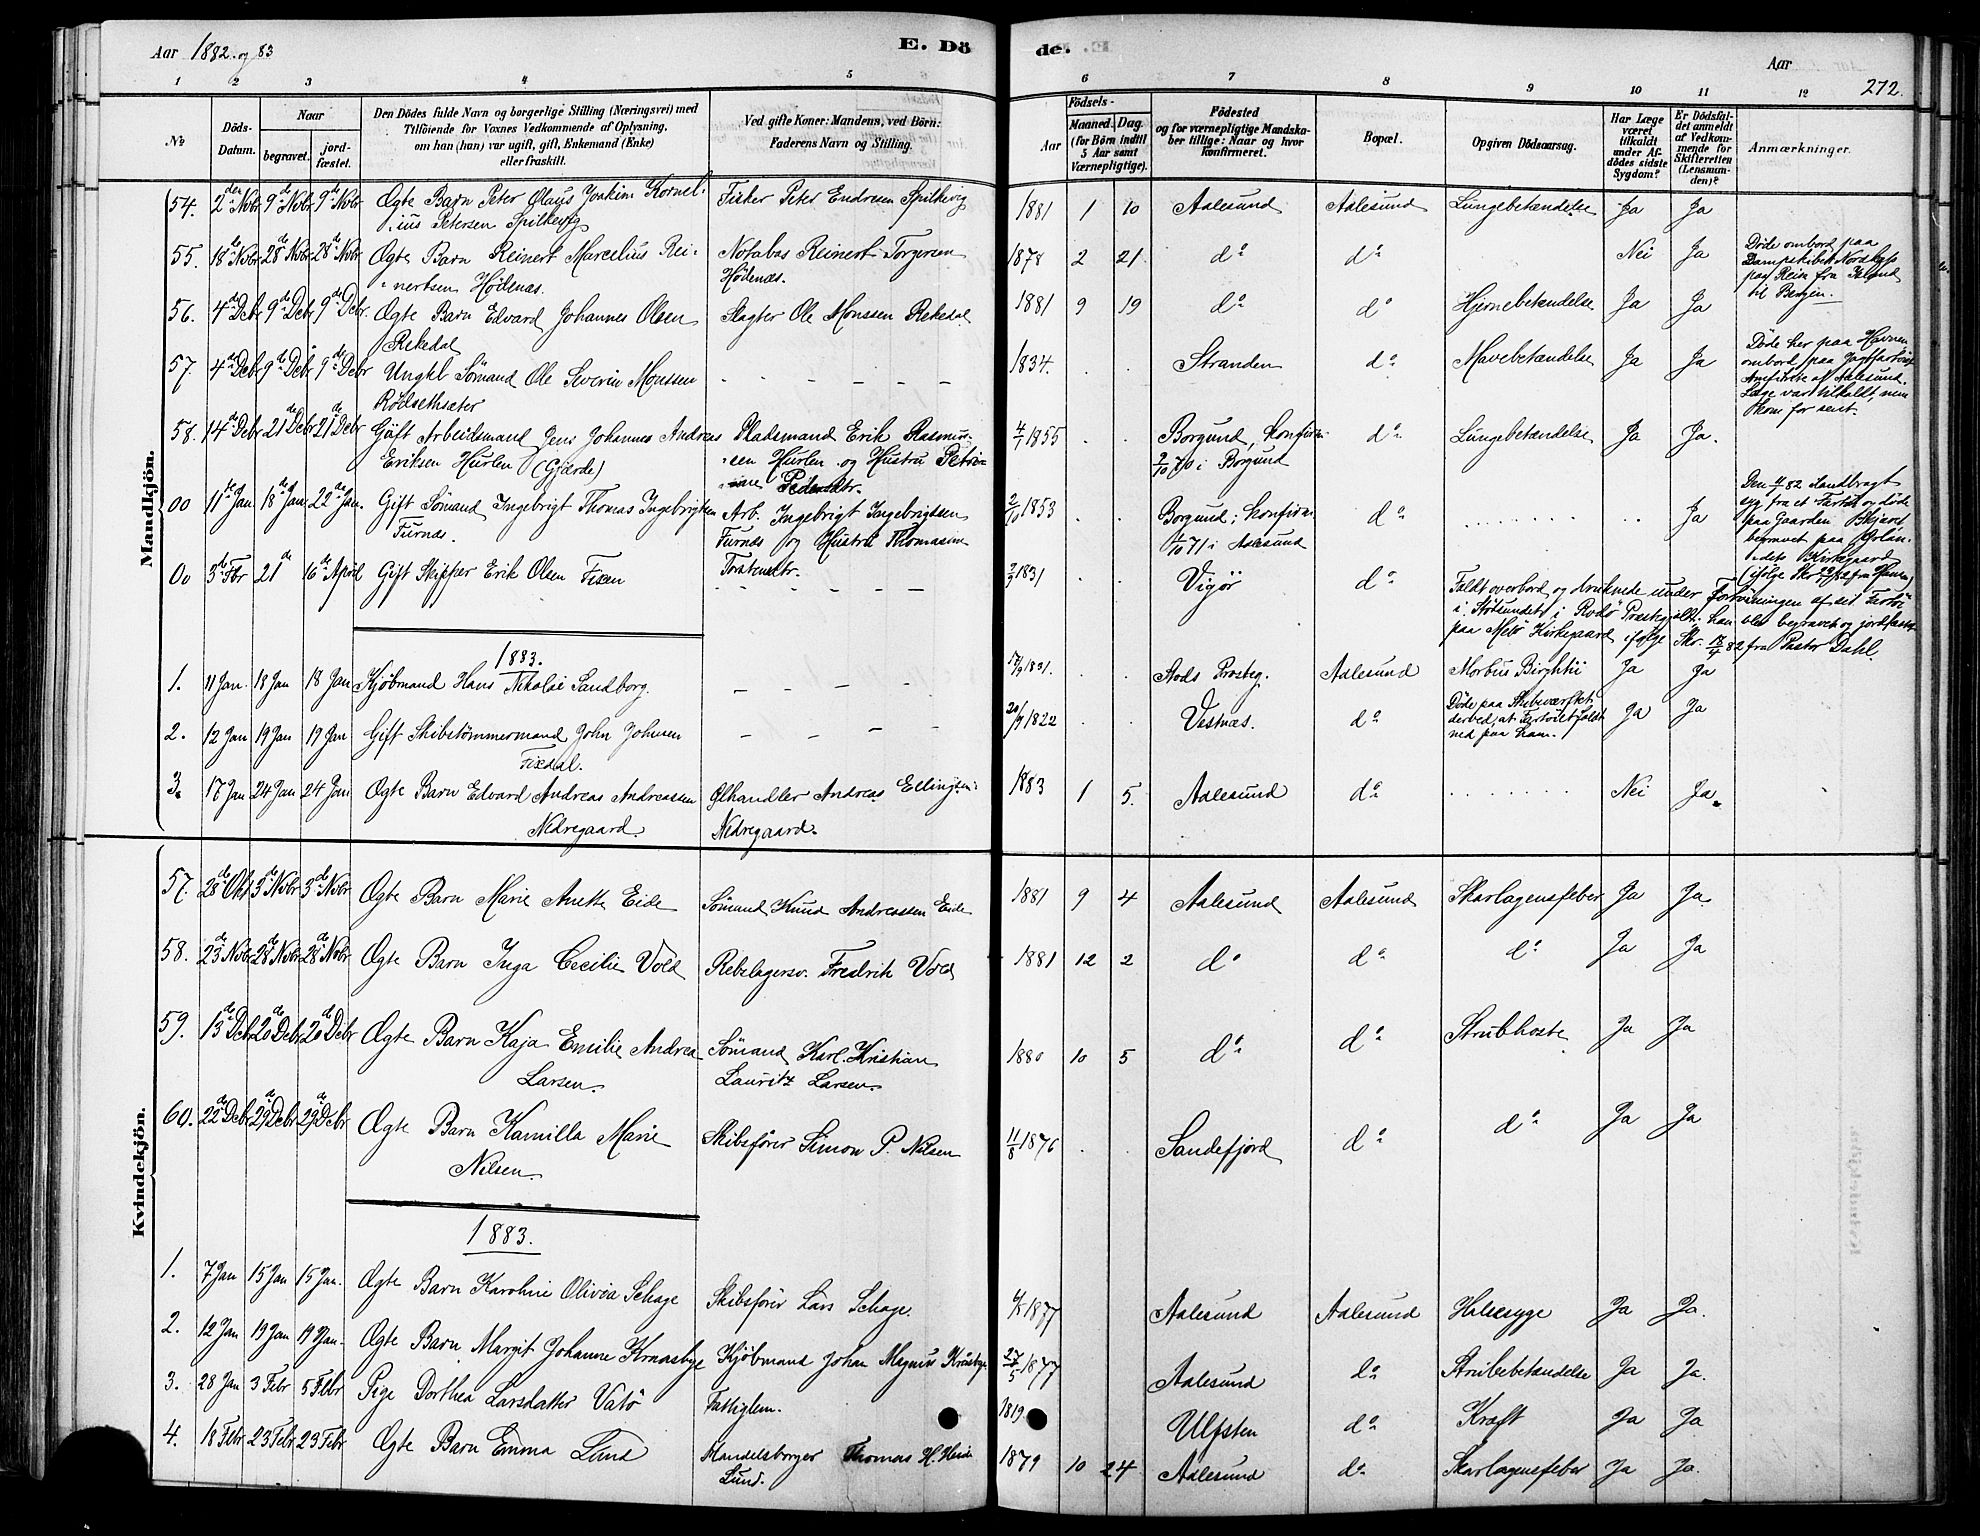 Aar 1882 og 83
E. Dö
de.
Aar
272.
1 2 3 4 5
6 7 8 9 10 11 12
No
Döds-
Datum.
Naar
begravet.
jord-
fæstet.
Den Dödes fulde Navn og borgerlige Stilling (Næringsvei) med
Tilföiende for Voxnes Vedkommende af Oplysning,
om han (hun) var ugift, gift, Enkemand (Enke)
eller fraskilt.
Ved gifte Koner: Mandens, ved Börn:
Faderens Navn og Stilling.
Aar
Födsels-
Maaned. Dag.
(for Börn indtil
5 Aar samt
Værnepligtige).
Födested
og for værnepligtige Mandska-
ber tillige: Naar og hvor
konfirmeret.
Bopæl.
Opgiven Dödsaarsag.
Har Læge
været
tilkaldt
under Af-
dödes sidste
Sygdom?
Er Dödsfal-
det anmeldt
af Vedkom-
mende for
Skifteretten
(Lensman-
den)?
Anmærkninger.
Mandkjön.
54. 2den Novbr 9de Novbr 9de Novbr Ægte Barn Peter Olaus Joakim Kornel- Fisker Peter Endresen Spilkevig 1881 1 10 Aalesund Aalesund Lungebetændelse Ja Ja
ius Petersen Spilkevig
55. 18de Novbr 28de Novbr 28de Novbr Ægte Barn Reinert Marcelius Rei- Notabas Reinert Torgersen 1878 2 21 do do Nei Ja Döde ombord paa
nertsen Hödenæs. Hödenæs. Dampskibet Nordkyss
paa Reise fra Island
til Bergen.
56. 4de Debr 9de Debr 9de Debr. Ægte Barn Edvard Johannes Olsen Slagter Ole Monssen Rekedal 1881 9 19 do do Hjernebetændelse Ja Ja
Rekedal
57. 4de Debr 9de Debr 9de Debr Ungkl Sömand Ole Severin Monssen - - - - - 1834. Stranden do Mavebetændelse Ja Ja Döde her paa Havnen
Rödsethsæter ombord paa Jagtfartöiet
af Aalesund.
Læge var tilkaldt, men
kom for sent.
58. 14de Debr 21de Debr 21de Debr Gift Arbeidsmand Jens Johannes Andreas Pladsmand Erik Rasmus- 4/1 1855 Borgund, konfirm. do Lungebetændelse Ja Ja.
Eriksen Hurlen (Gjærde) sen Hurlen og Hustru Petri- 2/10 70 i Borgund
ne Pedersdtr.
00 11te Jan 18de Jan 22de Jan. Gift Sömand Ingebrigt Thomas Ingebrigtsen Arb. Ingebrigt Ingebrigtsen 2/10 1853 Borgund; konfirm. do Ja Den 11/1 82 Landbragt
Furnæs. Furnæs og Hustru Thomasine 1/10 71 i Aalesund syg fra et Fartöi og döde
Torstensdtr. paa Gaarden
begravet paa
Kirkegaard
(ifölge Skr 22/1 82 fra
00 3de Fbr 21de 16de April Gift Skipper Erik Olsen Fixen - - - - - 2/3 1831 Vigör do Faldt overbord og druknede under Fortöiningen af sit Fartöi
i Stötsundet i Rödö Præstegjæld; han blev begravet og jordfæstet
paa Melö Kirkegaard ifölge Skr. 17/4 82 fra Pastor Dahl.
1883.
1. 11 Jan. 18 Jan 18 Jan Kjöbmand Hans Nikolai Sandborg. - - - - 17/9 1831. Stods Præsteg. Aalesund Morbus Birghtii Ja Ja
2. 12 Jan 19 Jan 19 Jan Gift Skibstömmermand John Johnsen - - - 20/9 1822 Vestnæs. do Döde paa Skibsværftet Ja Ja
Fixdal. derved, at Fartöiet faldt
ned paa ham.
3. 17 Jan 24 Jan 24 Jan Ægte Barn Edvard Andreas Andreassen Ölhandler Andreas Ellingsen 1883 1 5. Aalesund do Nei Ja.
Nedregaard. Nedregaard.
Kvindekjön.
57. 28de Okt 3de Novbr 3de Novbr Ægte Barn Marie Anette Eide Sömand Knud Andreassen Eide 1881 9 4 Aalesund Aalesund Skarlagensfeber Ja Ja.
58. 23de Novbr 28de Novbr 28de Novbr Ægte Barn Inga Cecilie Vold Rebslagersv. Fredrik Vold 1881 12 2 do do do Ja Ja
59. 13de Debr 20de Debr 20de Debr Ægte Barn Kaja Emilie Andrea Sömand Karl Kristian 1880 10 5 do do Strubhoste Ja Ja
Larsen. Lauritz Larsen.
60. 22de Debr 29de Debr 29de Debr Ægte Barn Kamilla Marie Skibsförer Simon P. Nilsen 11/8 1876 Sandefjord do do Ja Ja
Nilsen.
1883.
1. 7 Jan 15 Jan 15 Jan. Ægte Barn Karoline Olivia Schage Skibsförer Lars Schage. 4/5 1877 Aalesund Aalesund Halssyge Ja Ja.
2. 12 Jan 19 Jan 19 Jan. Ægte Barn Margit Johanne Kraasbye Kjöbmand Johan Magnus Kraasbye 27/5 1877 Aalesund do Strubebetændelse Ja Ja.
3. 28 Jan 3 Febr 5 Febr Pige Dorthea Larsdatter Vatö Fattiglem. 1819 Ulfsten do Kræft Ja Ja
4. 18 Febr 23 Febr 23 Febr Ægte Barn Emma Lund Handelsborger Thomas H. 1879 10 24 Aalesund do Skarlagensfeber Ja Ja.
Lund.